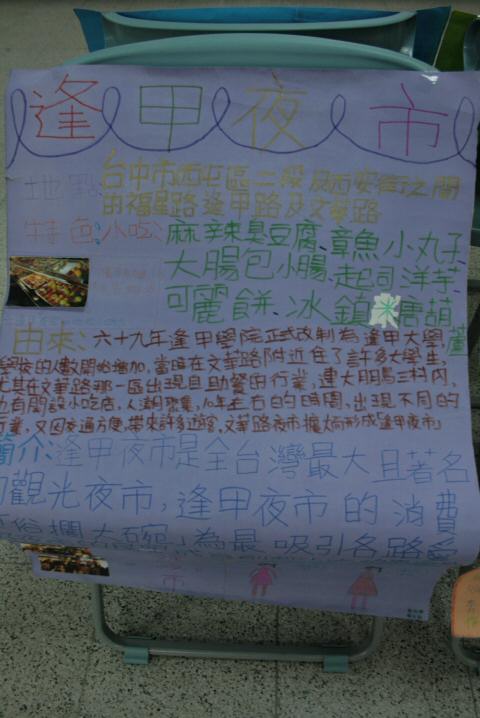 逢甲夜市
地點:台中市西屯區二段及西安街之間
的福星路逢甲路及文華路
特色:小吃:麻辣臭豆腐、章魚小丸子
大腸包小腸、起司洋芋、
可麗餅、冰鎮 唐葫蘆
由來:六十九年逢甲學院正式改制為逢甲大學,
學校的 數開始增加,當時在文華路附近住了許多大學生,
尤其在文華路那一區出現自助餐的行業,連大鵬 三村內,
也有開設小吃店,人潮聚集,10年左右的時間,出現不同的
行業,又因交通方便,帶來許多 ,文華路夜市擴大而形成「逢甲夜市」
簡介:逢甲夜市是全台灣最大且著名
的觀光夜市,逢甲夜市的消費
俗擱大碗」為最,吸引各路
市